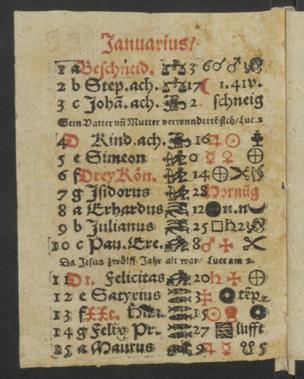 Januarius/
1 a Beschneid. 3 6
2 b Step.ach. 17 1.41v.
3 c Johā.ach. 2 schneig
Sein Vatter vñ Mutter verwundertē sich/Luc. 2
4 D Kind.ach. 16
5 e Simeon 0
6 f Drey Kön. 14
7 g Isidorus 28 Hornūg
8 a Erhardus 12 n.n
9 b Julianus 25
10 c Pau. Ere. 8
Da Jesus zwölff Jahr alt war/ Luce am 2.
11 D1. Felicitas 20
12 e Satyrius 3 tēp.
13 f XX. 15
14 g Felix Pr. 27 lufft
15 a Maurus 9